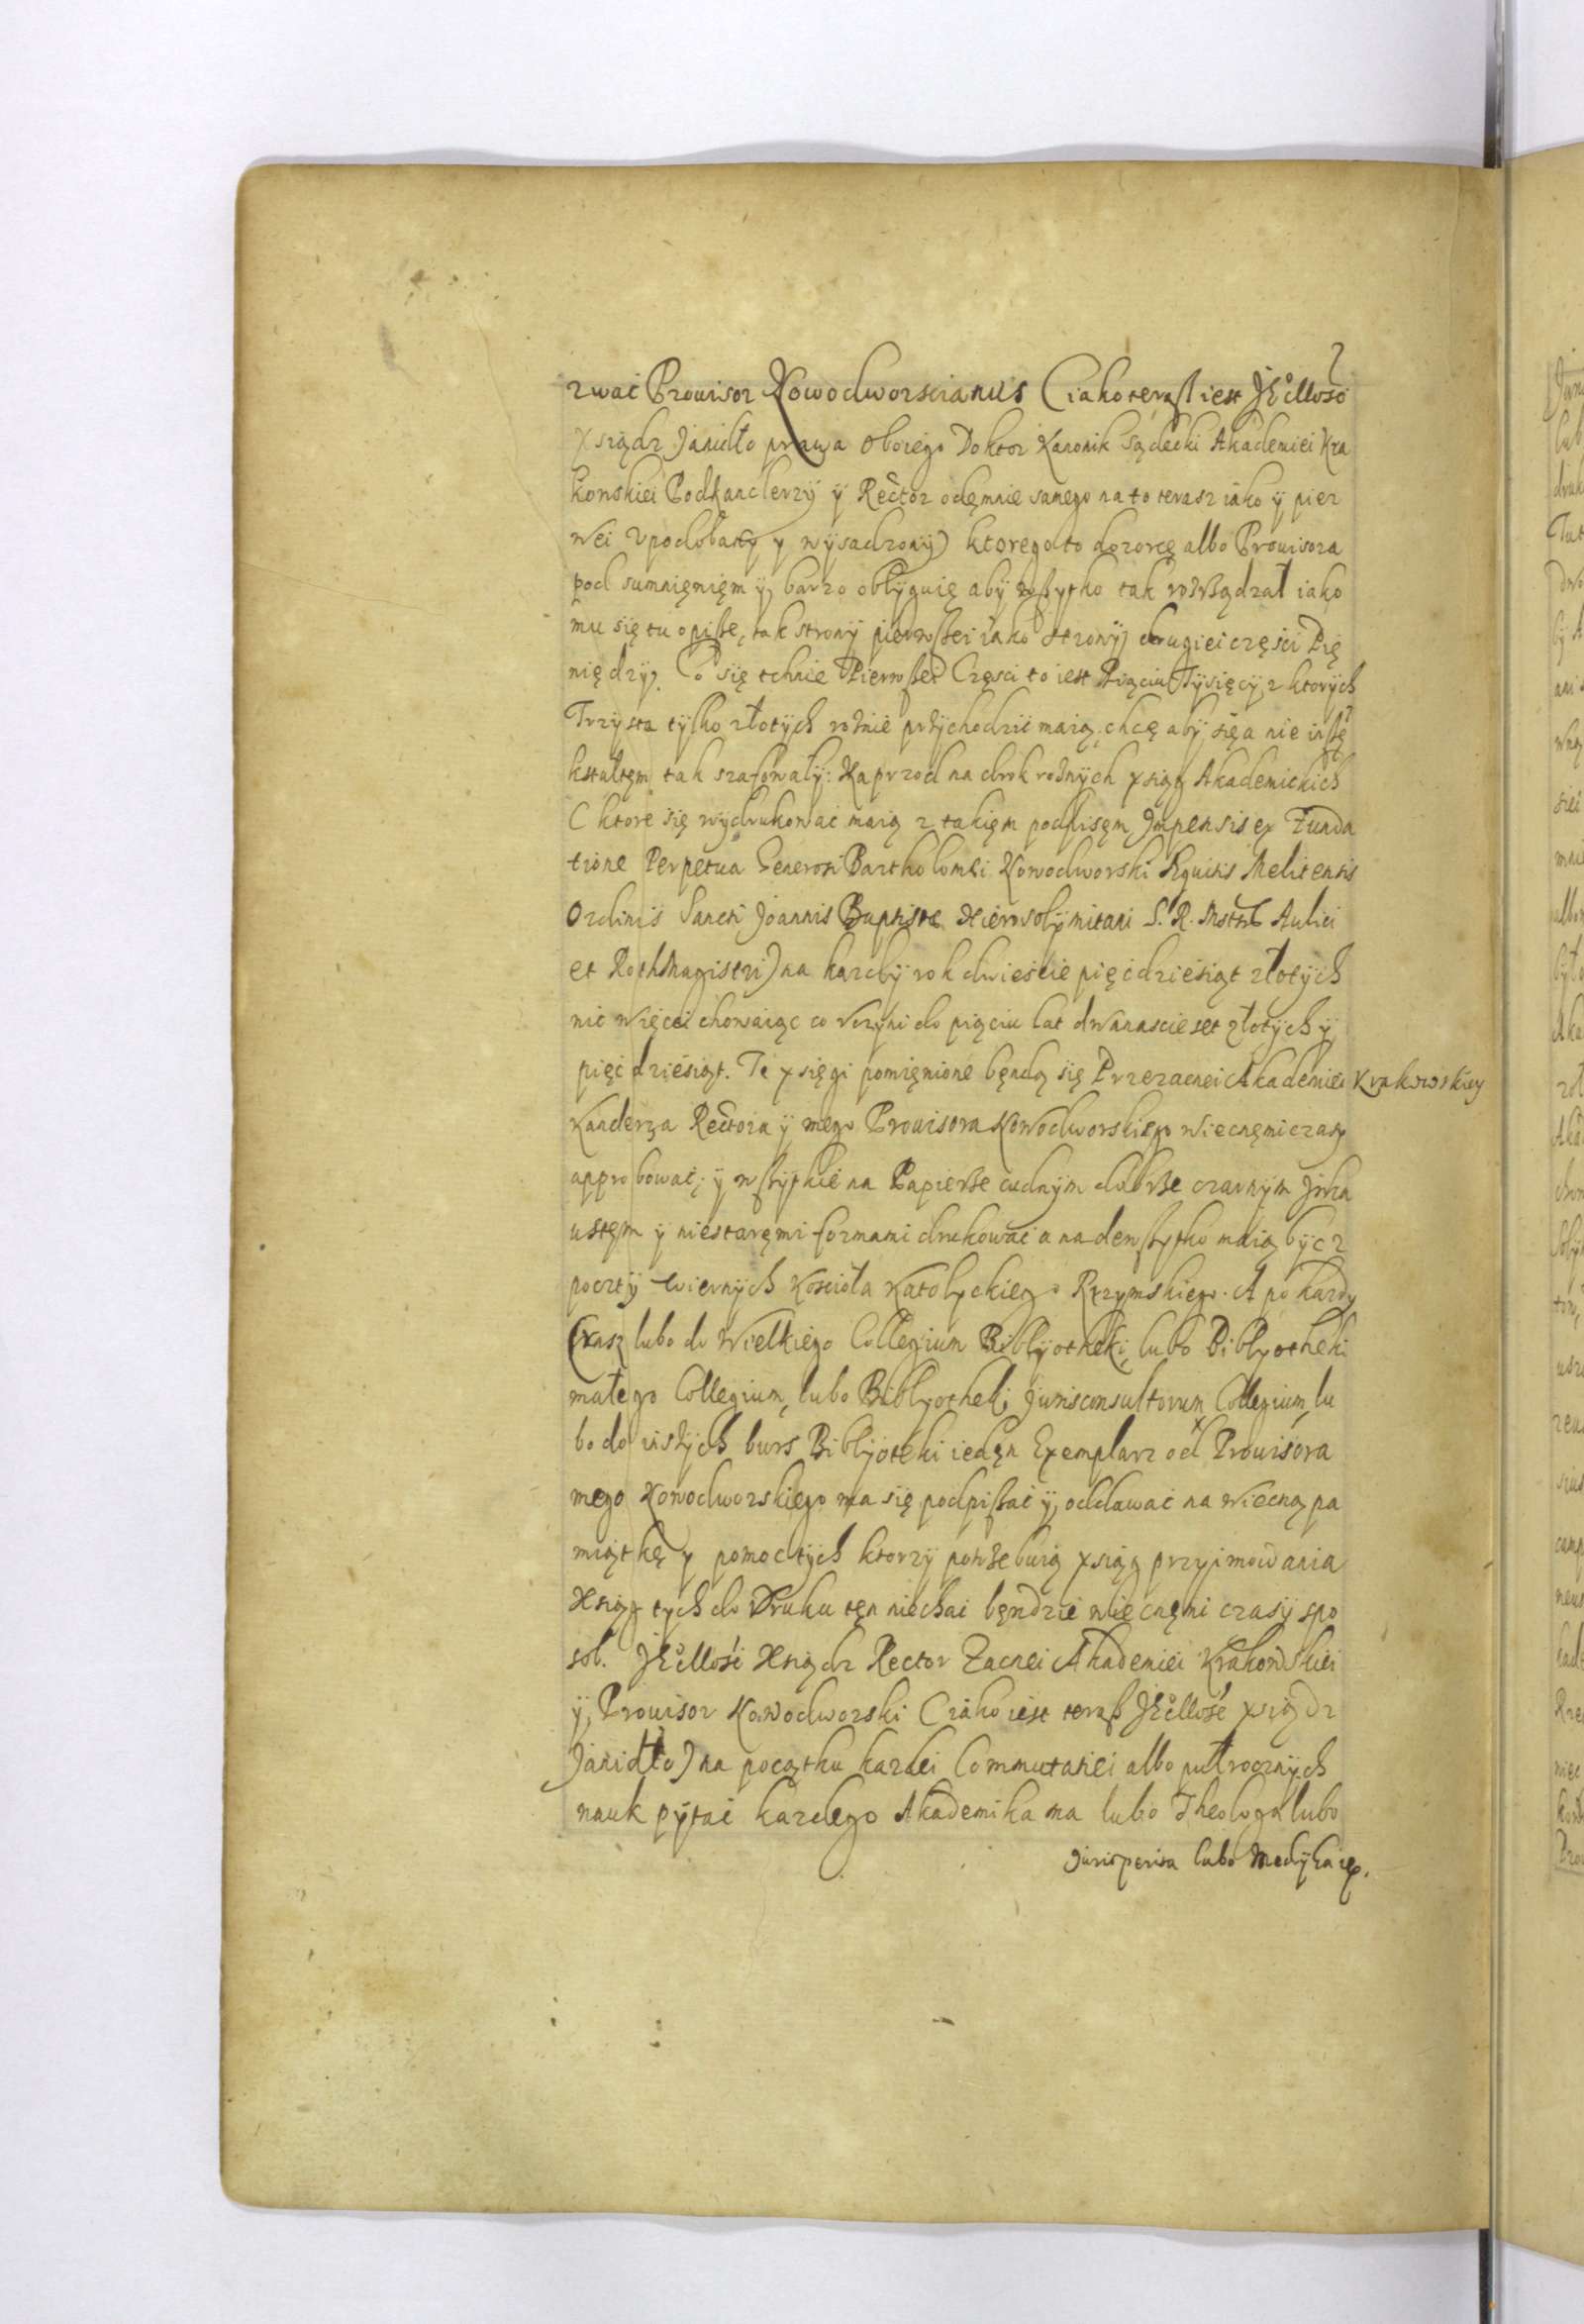 zwać Prouisor Nowodworscianus (iako teraß iest Jĕ̊mość
xsiądz Janidło prawa oboiego Doktor Kanonik Sądecki Akademiei Kra
kowskiei Podkanclerzÿ ÿ Rector odęmnie samego na to terasz iako ÿ pier
wei vpodobanÿ y wÿsadzonÿ) ktorego to dozorcę albo Prouisora
pod sumnięnięm ÿ barzo oblÿguię abÿ wßytko tak rozrządzał iako
mu się tu opiße, tak stronÿ pierwßei iako stronÿ drugiei częsci Pię
niędzÿ. Co się tchnie Pierwßei Częsci to iest Pięciu Tÿsięcÿ z ktorÿch
Trzÿsta tÿlko złotÿch rożnie przÿchodzić maią, chcę abÿ się a nie inßę
kstałtęm tak szafowałÿ: Naprzod na druk rożnÿch xsiąg Akademickich
(ktore się wÿdrukować maią z takięm podpisęm, Jmpensis ex Funda
tione Perpetua Generosi Bartholomei Nowodworski Equitis Melitensis
Ordinis Sancti Joannis Baptistæ Hierosolÿmitani S. R. Mottis Aulici
et RothMagistri) na kazdÿ rok dwieście pięćdziesiąt złotÿch
nic więcei chowaiąc co vczÿni do pięciu lat dwanascie set złotÿch ÿ
pięćdziesiąt. Te xsięgi pomięnione będą się Przezacnei Akademiei Krakowskiey
Kanclerza Rectora ÿ mego Prouisora Nowodworskiego wiecnęmi czasÿ
approbować, ÿ wßÿtkie na Papierze cudnÿm dobrze czarnÿm Jnka
ustęm ÿ niestaręmi formami drukować a nadewßÿtko maią bÿć z
pocztÿ wiernÿch Koscioła Katolyckiego Rzymskiego. A po kazdÿ
czasz lubo do Wielkiego Collegium Biblÿotheki, lubo Biblyotheki
małego Collegium, lubo Biblyotheki Jurisconsultorum Collegium, lu
bo do inszÿch burs Biblÿoteki iedęn Exemplarz od Prouisora
mego Nowodworskiego ma się podpißać ÿ oddawać na wiecną pa
miątkę y pomoc tÿch ktorzÿ potrzebuią xsiąg przyimowania
Xsiąg tych do Druku tęn niechai będzie wiecnęmi czasÿ spo
sob. Jĕ̊mość Xsiądz Rector Zacnei Akademiei Krakowskiei
ÿ Prouisor Nowodworski (iako iest teraß Jĕ̊mość xsiądz
Janidło) na początku kazdei Commutatiei albo pułrocznÿch
nauk pÿtać kazdego Akademika ma lubo Theologa lubo
Jurisperita lubo Medÿka